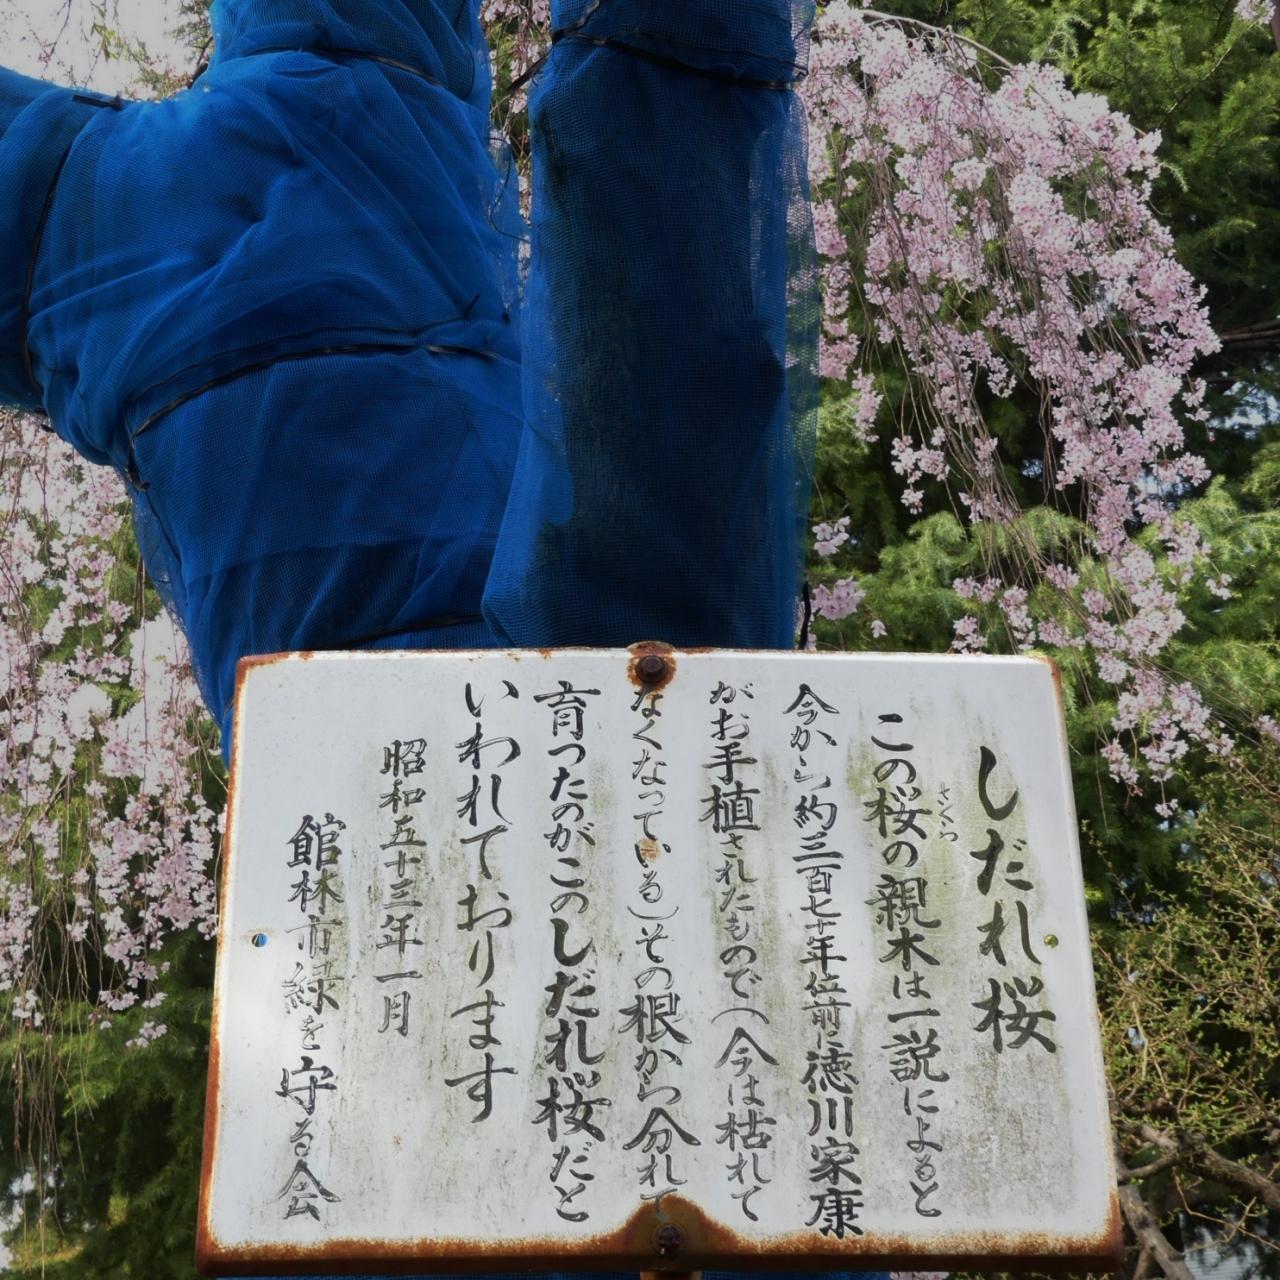 しだれ桜
この桜の親木は一説によると
さくら
今から約三百七十年位前に徳川家康
がお手植されたもので(今は枯れて
なくなっている)その根から分れて
育つたのがこのしだれ桜だと
いわれております
昭和五十三年一月
館林市緑を守る会